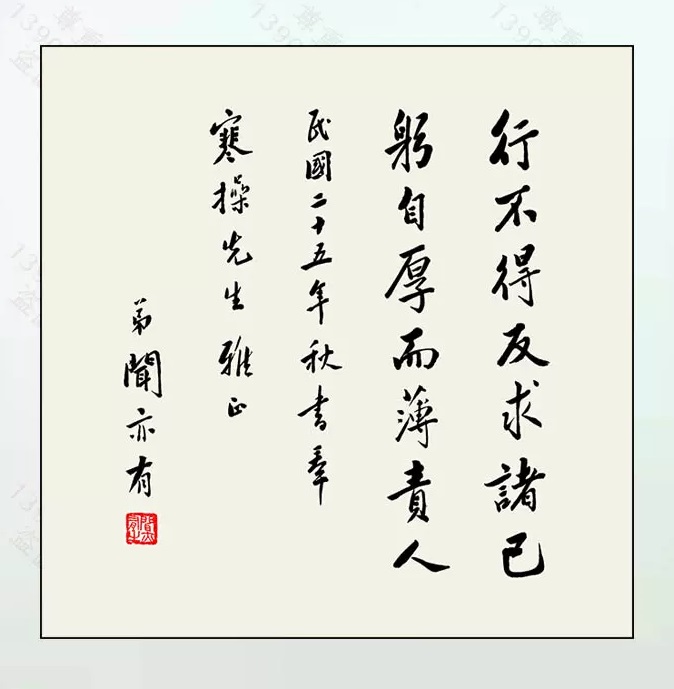 行不得反求諸己
躬自厚而薄責人
民國二十五年秋書奉
寒操先生雅正
弟聞亦有